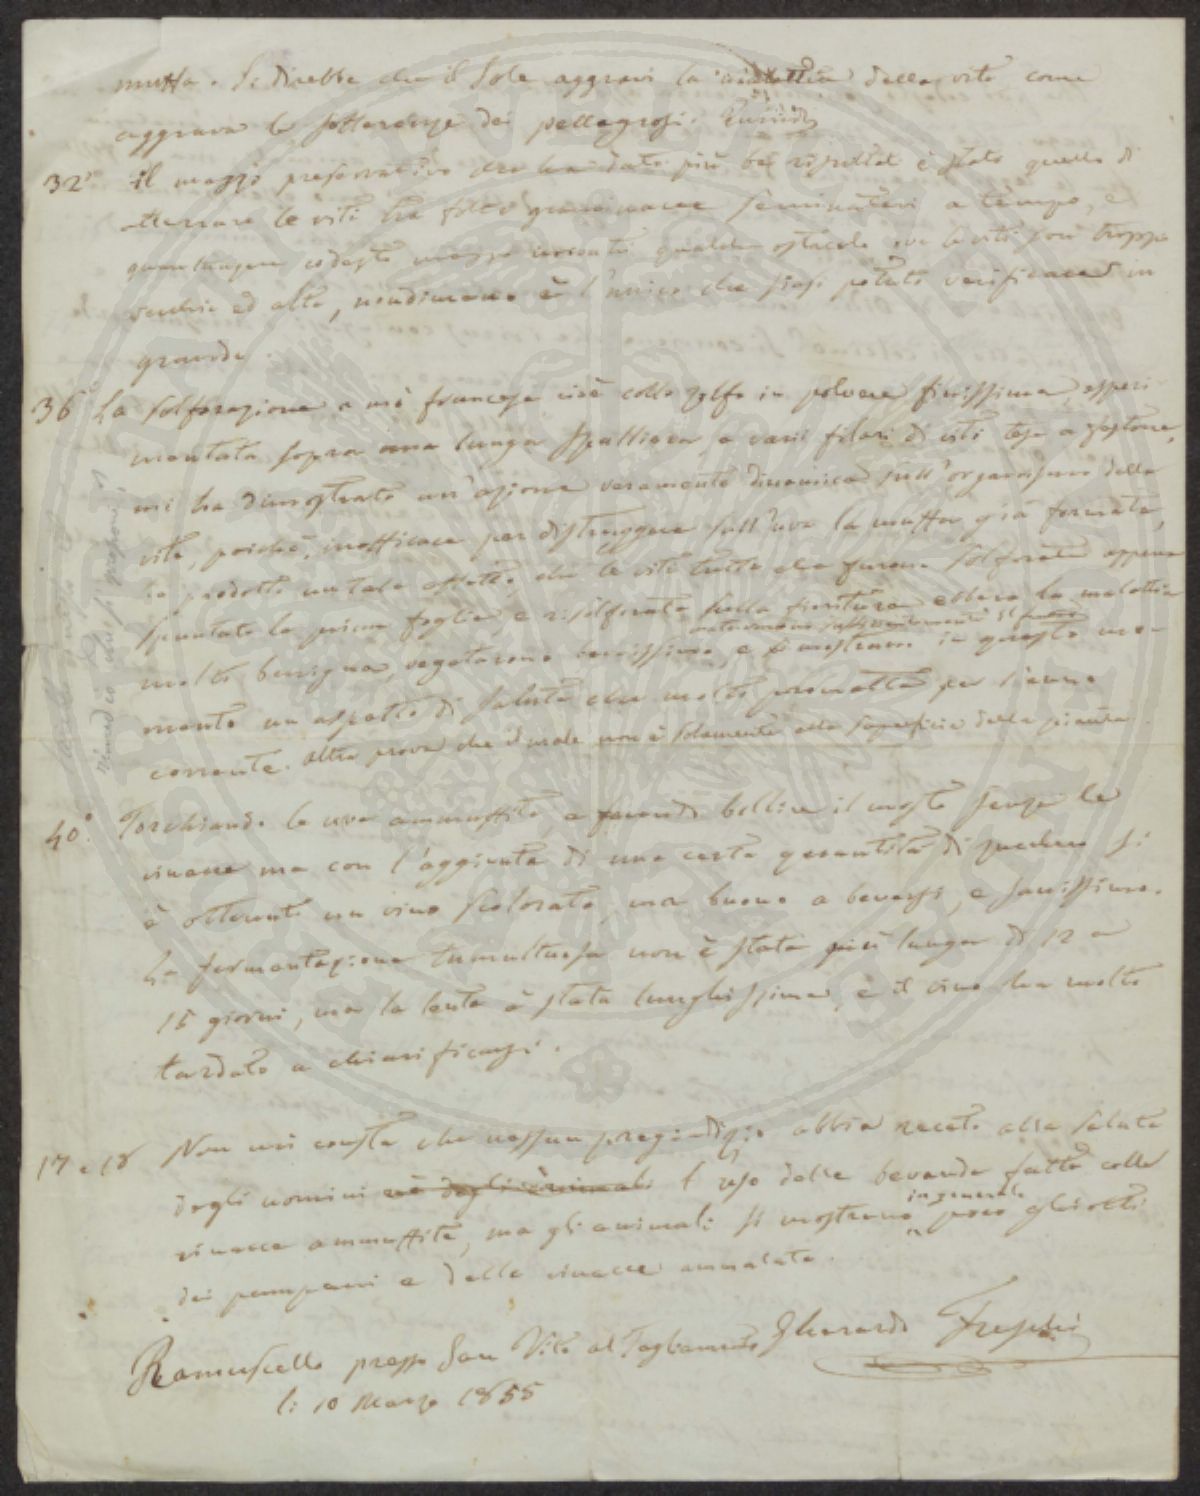 muffa. Si direbbe che il Sole aggravi la malattia della vite come
aggrava le sofferenze dei pellagrosi.
32° Il mezzo preservativo che ha dato più bei risultati è stato quello di
atterrare le viti tra folte graminacee seminatevi a tempo, e
quantunque codesto mezzo incontri qualche ostacolo ove le viti son troppo
vecchie ed alte, nondimeno è l'unico che siasi potuto verificare in
grande.
36° La solforazione a mò francese cioè collo zolfo in polvere finissima, esperi
mentata sopra una lunga spalliera, e varii filari di viti tese a festone,
mi ha dimostrato un'azione veramente dinamica sull'organismo della
vite, poichè, inefficace per distruggere sull'uva la muffa già formata,
ha prodotto un tale effetto, che le viti tutte che furono solforate appena
spuntate le prime foglie, e risolforate sulla fioritura ebbero la malattia
molto benigna, vegetarono benissimo, maturarono sufficientemente il frutto e si mostrano in questo mo-
mento un aspetto di salute che molto promette per l'anno
corrente. Altra prova che il male non è solamente alla superficie della pianta.
40° Torchiando le uve ammuffite, e facendo bollire il mosto senza le
vinacce ma con l'aggiunta di una certa quantità di zucchero si
è ottenuto un vino scolorato, ma buono a beversi, e sanissimo.
La fermentazione tumultuosa non è stata più lunga di 12 a
15 giorni, ma la lenta è stata lunghissima, e il vino ha molto
tardato a chiarificarsi.
17 e 18 Non mi consta che nessun pregiudizio abbia recato alla salute
degli uomini nè degli animali l'uso delle bevande fatte colle
vinacce ammuffite, ma gli animali si mostrano in generale poco ghiotti
dei pampani e delle vinacce ammalate.
Ramuscello presso San Vito al Tagliamento Gherardo Freschi
li 10 Marzo 1855